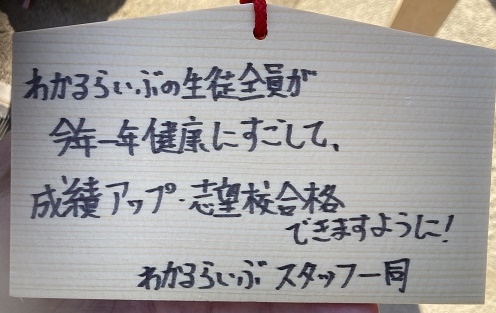 わかるらいぶの生徒全員が
今年一年健康にすごして、
成績アップ・志望校合格
できますように!
わかるらいぶスタッフ一同